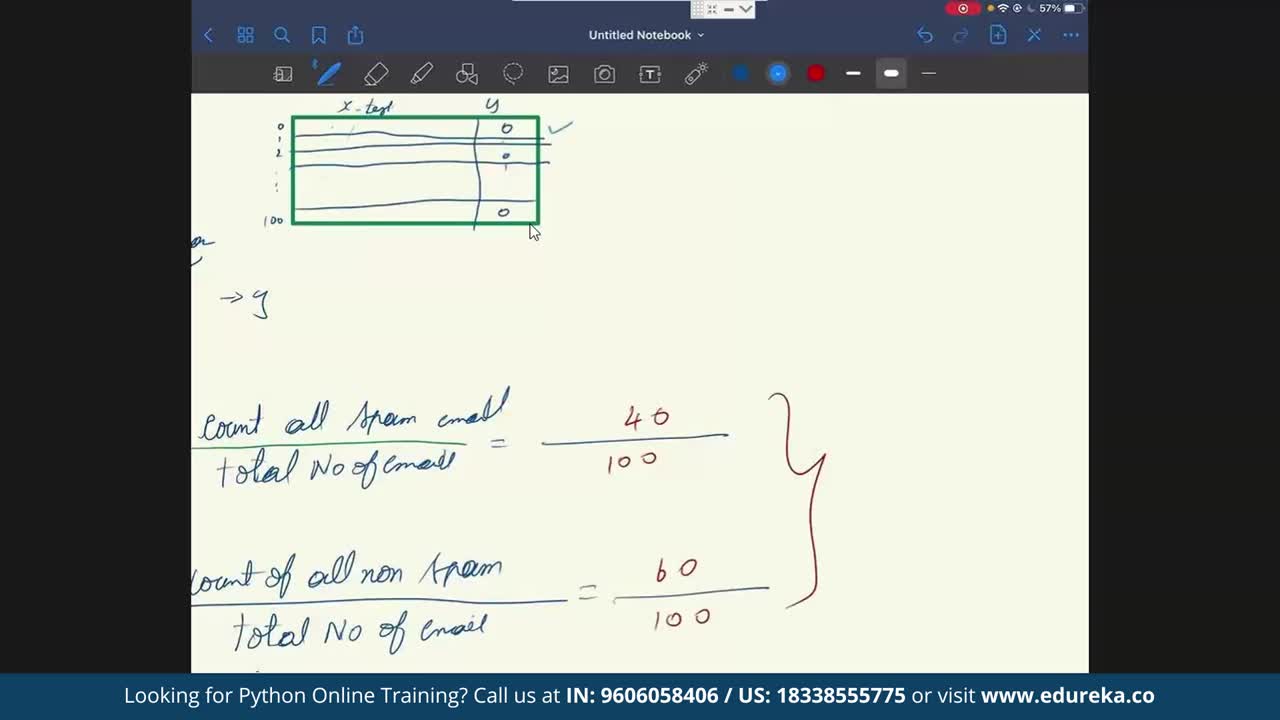 57%
Untitled Notebook
x-test y
0 0
1
2 0
100 0
→ y
Count all spam email = 40
total No of email 100
count of all non spam = 60
total No of email 100
Looking for Python Online Training? Call us at IN: 9606058406 / US: 18338555775 or visit www.edureka.co